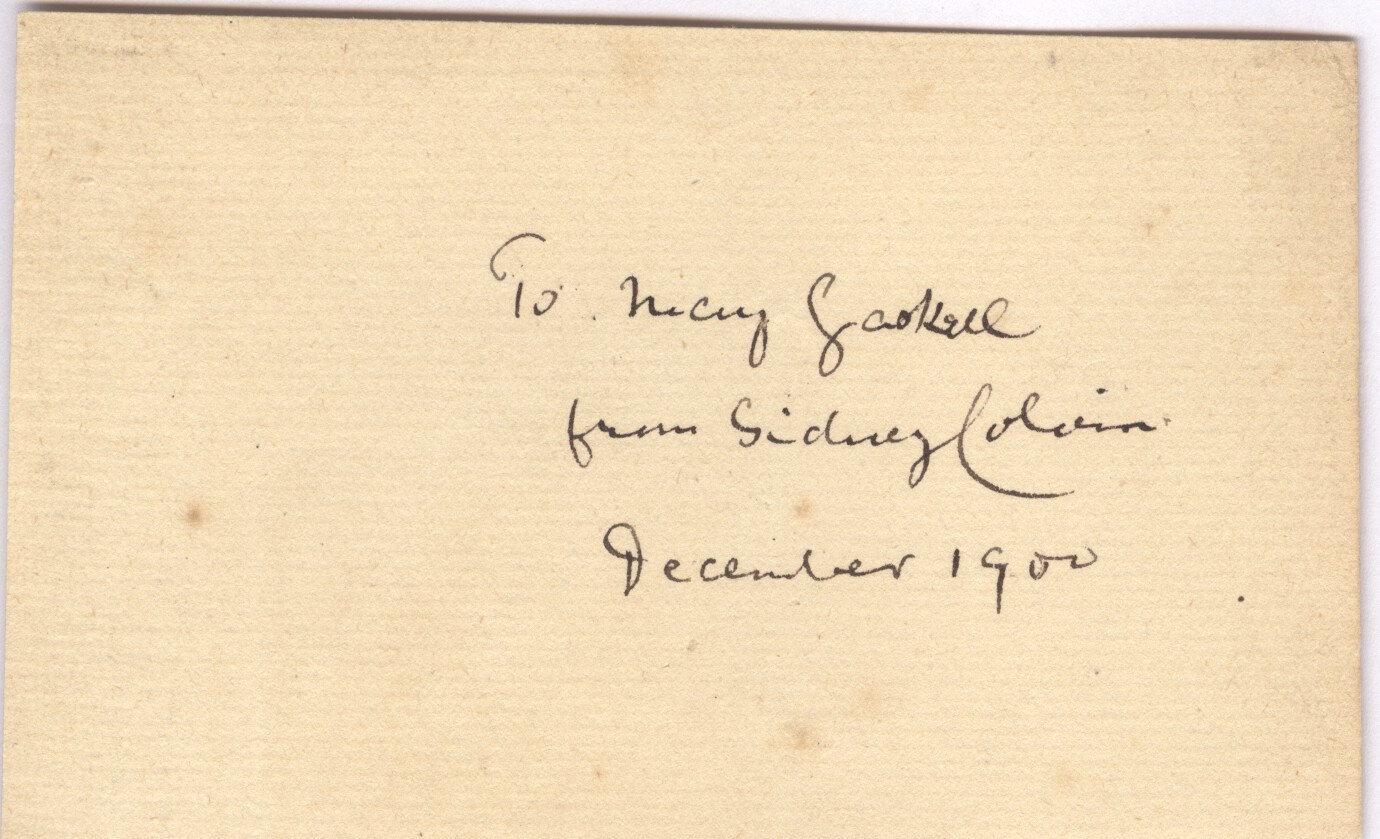 To Mary Gaskell
from Sidney Colvin
December 1900